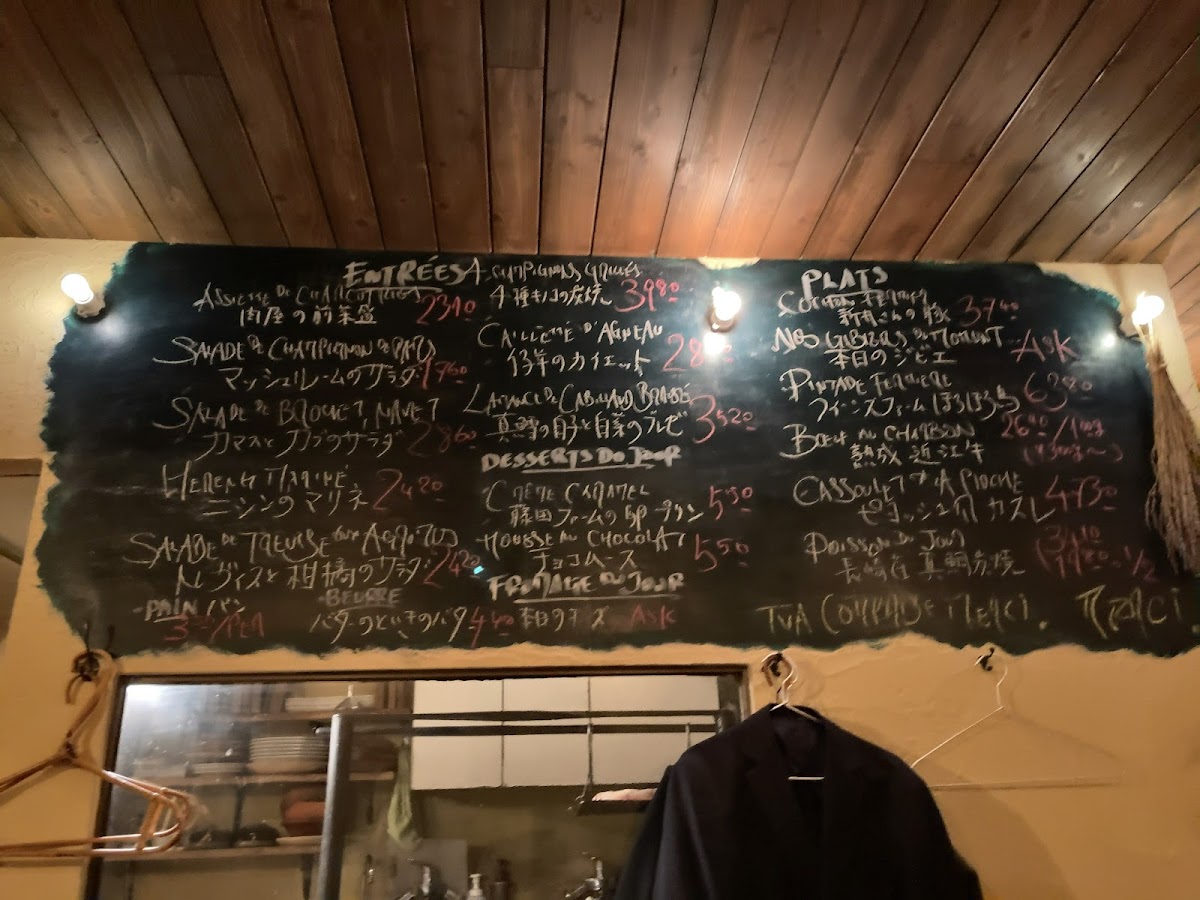 ENTRÉES
ASSIETTE DE CHARCUTERIES
肉屋の前菜盛 2310
SALADE DE CHAMPIGNON DE PARIS
マッシュルームのサラダ 1760
SALADE DE BROCHET, NAVET
カマスとカブのサラダ 2860
HARENG MARINÉ
ニシンのマリネ 2420
SALADE DE TREVISE AUX AGRUMES
トレヴィスと柑橘のサラダ 2420
PAIN パン
BEURRE
バター 440
4 CHAMPIGNONS GRILLÉS
4種キノコの炭焼 3980
CAILLETTE D'AGNEAU
仔羊のカイエット 28
LAITANCE DE CABILLAUD BRAISÉ
真鱈の白子と白菜のブレゼ 3520
DESSERTS DU JOUR
CRÈME CARAMEL
藤田ファームの プリン 550
MOUSSE AU CHOCOLAT
チョコムース 550
FROMAGE DU JOUR
本日のチーズ ASK
PLATS
COCHON FERMIER
豚 3740
NOS GIBIERS DU MOMENT
本日のジビエ ASK
PINTADE FERMIERE
ファーム ほろほろ鳥 6380
BOEUF AU CHARBON
熟成 近江牛
CASSOULET À PIOCHE
ピヨッシュ風 カスレ 4730
POISSON DU JOUR
長崎産 真鯛炭焼
MERCI.
MERCI